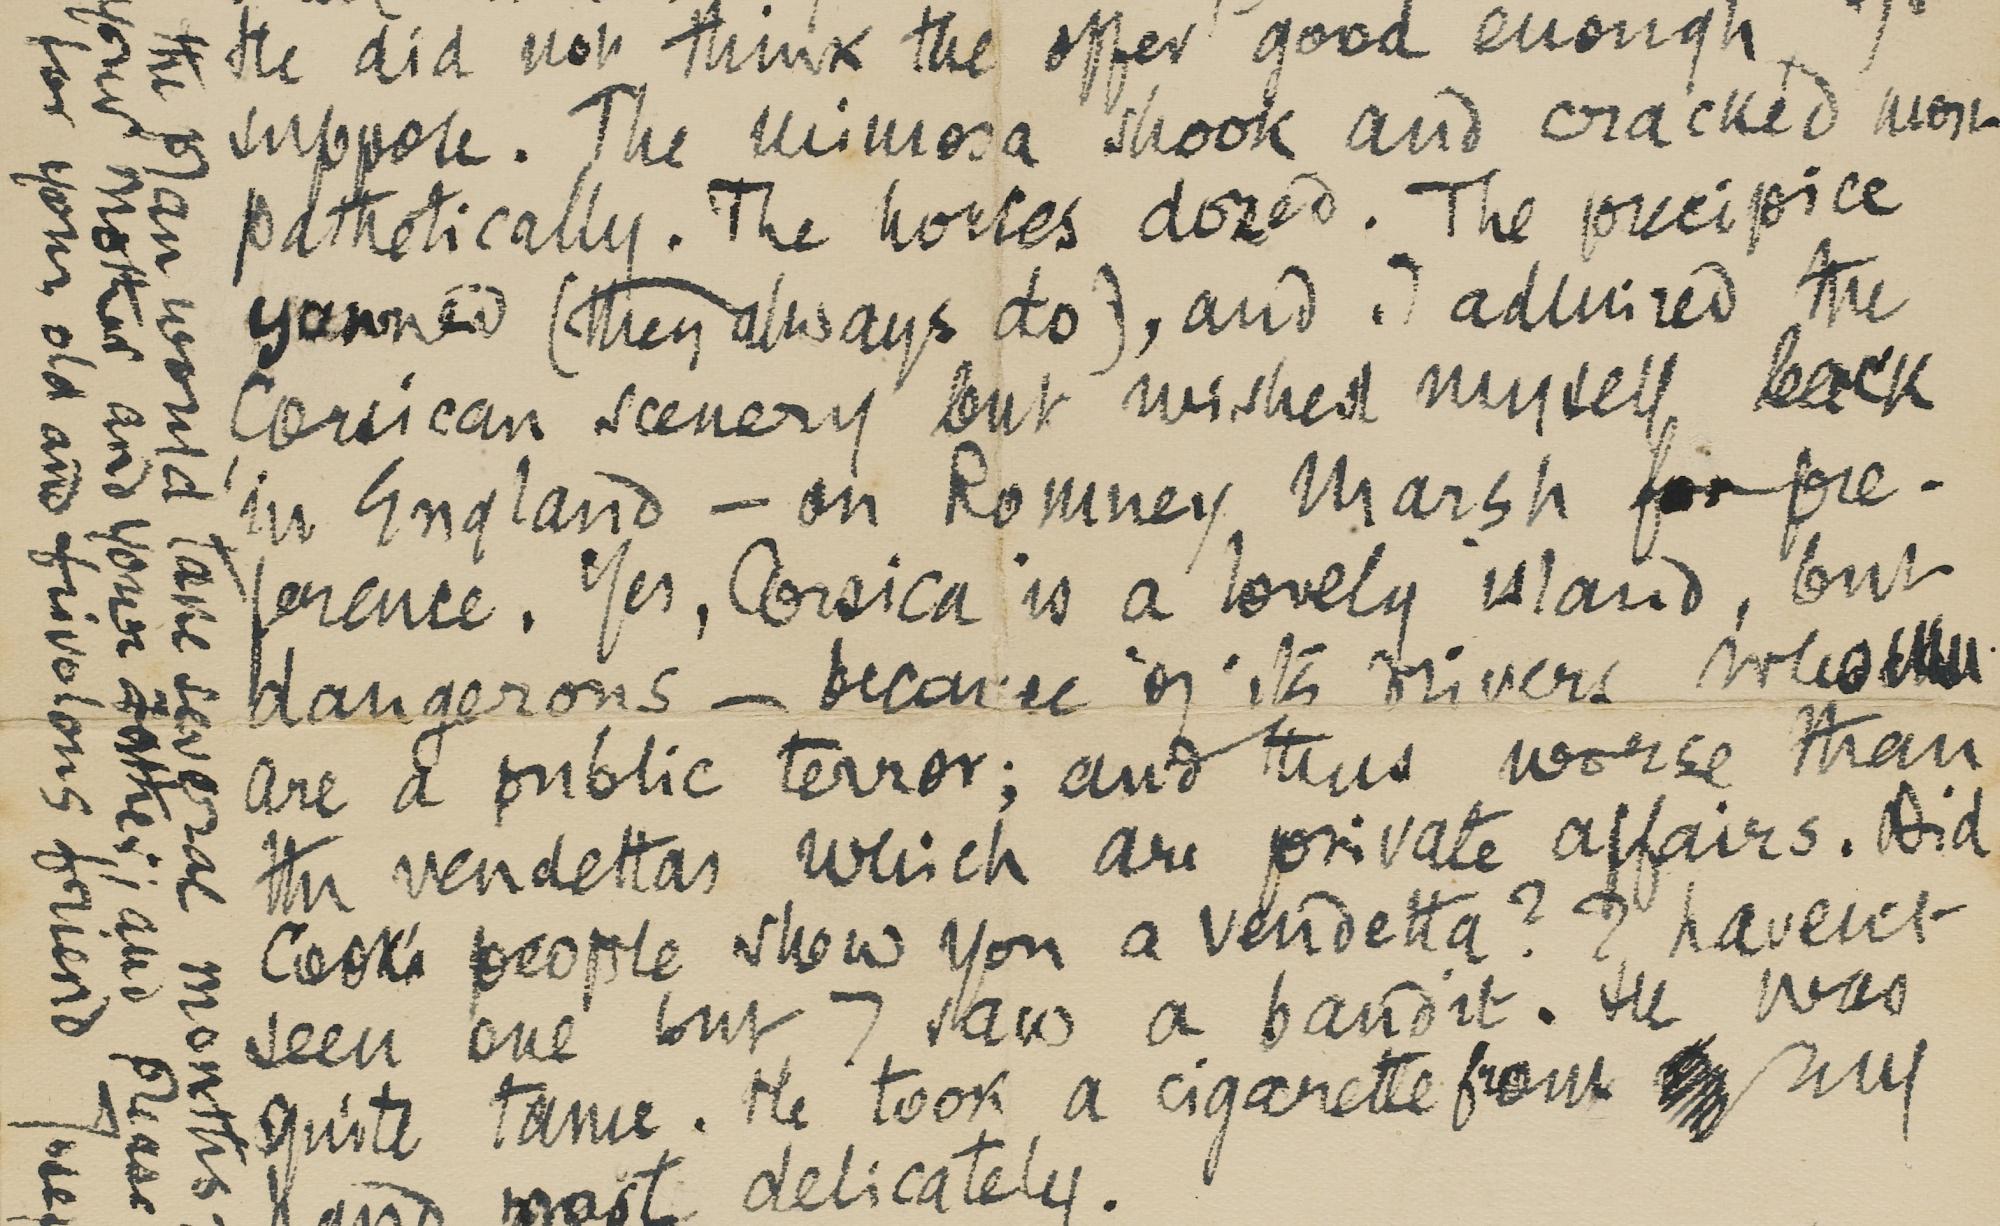 He did not think the offer good enough I
suppose. The mimosa shook and cracked most
pathetically. The horses dozed. The precipice
yawned (they always do), and I admired the
Corsican scenery but wished myself back
in England — on Romney Marsh for pre-
ference. Yes, Corsica is a lovely island, but
dangerous — because of its drivers who
are a public terror; and thus worse than
the vendettas which are private affairs. Did
Cook's people show you a vendetta? I haven't
seen one but I saw a bandit. He was
quite tame. He took a cigarette from my
hand most delicately.
the plan would take several months
your mother and your father; and please
for your old and frivolous friend